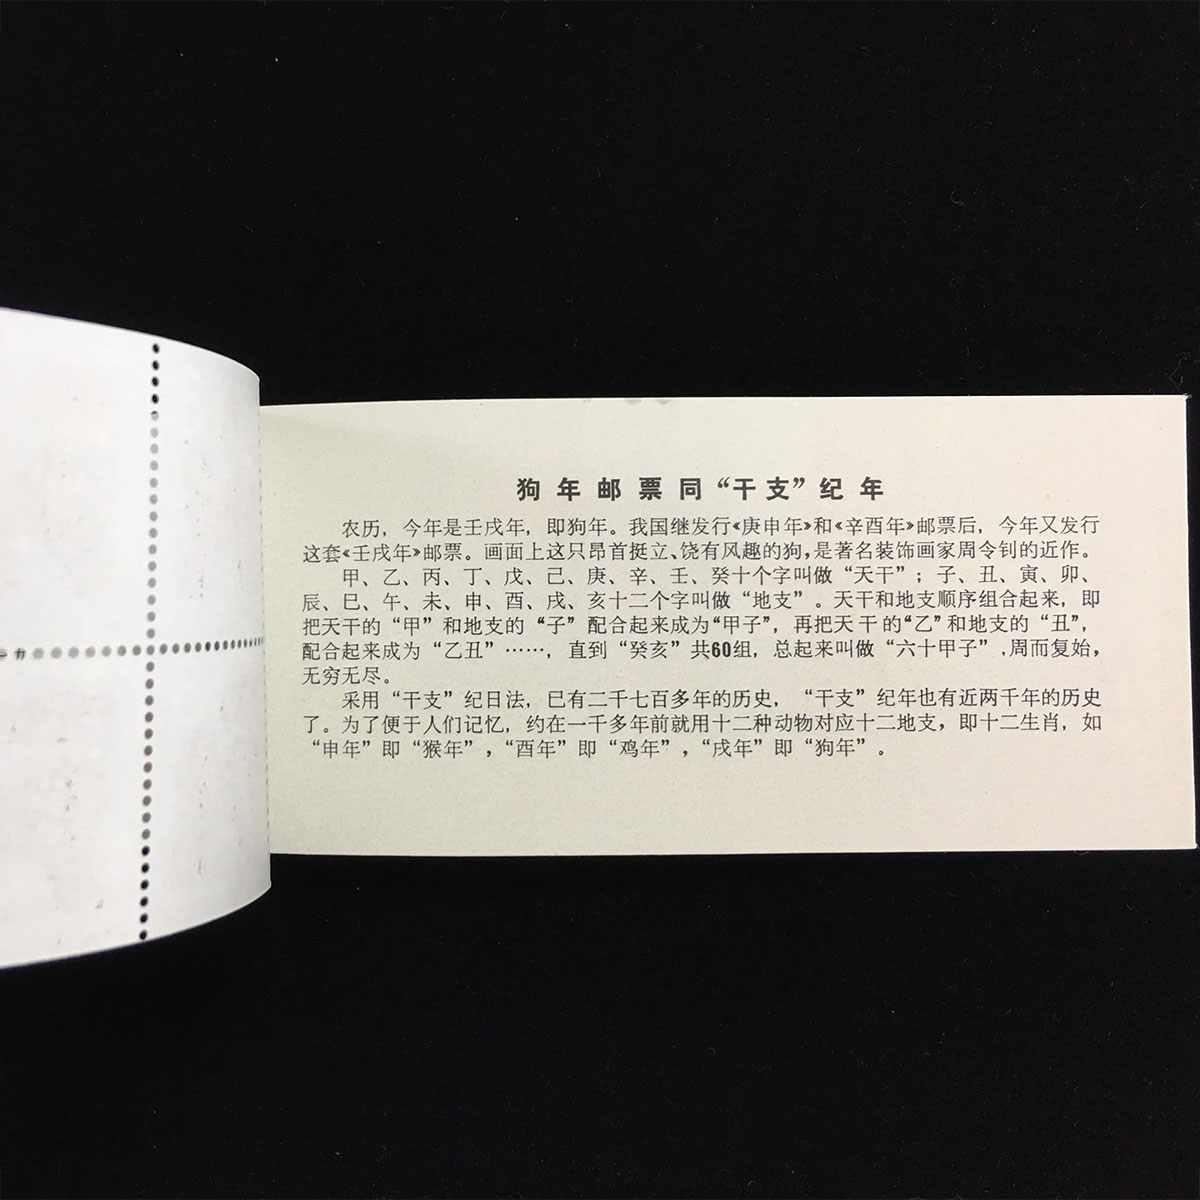 狗年邮票同“干支”纪年
农历，今年是壬戌年，即狗年。我国继发行《庚申年》和《辛酉年》邮票后，今年又发行
这套《壬戌年》邮票。画面上这只昂首挺立、饶有风趣的狗，是著名装饰画家周令钊的近作。
甲、乙、丙、丁、戊、己、庚、辛、壬、癸十个字叫做“天干”；子、丑、寅、卯、
辰、巳、午、未、申、酉、戌、亥十二个字叫做“地支”。天干和地支顺序组合起来，即
把天干的“甲”和地支的“子”配合起来成为“甲子”，再把天干的“乙”和地支的“丑”，
配合起来成为“乙丑”……，直到“癸亥”共60组，总起来叫做“六十甲子”，周而复始，
无穷无尽。
采用“干支”纪日法，已有二千七百多年的历史，“干支”纪年也有近两千年的历史
了。为了便于人们记忆，约在一千多年前就用十二种动物对应十二地支，即十二生肖，如
“申年”即“猴年”，“酉年”即“鸡年”，“戌年”即“狗年”。